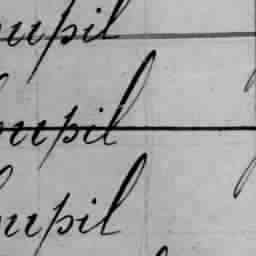 pupil
pupil
pupil